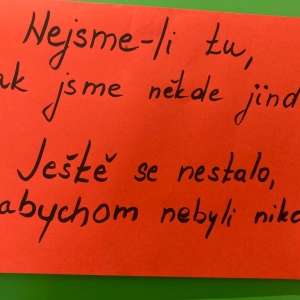 Nejsme-li tu,
ak jsme někde jind
Ještě se nestalo,
abychom nebyli nik